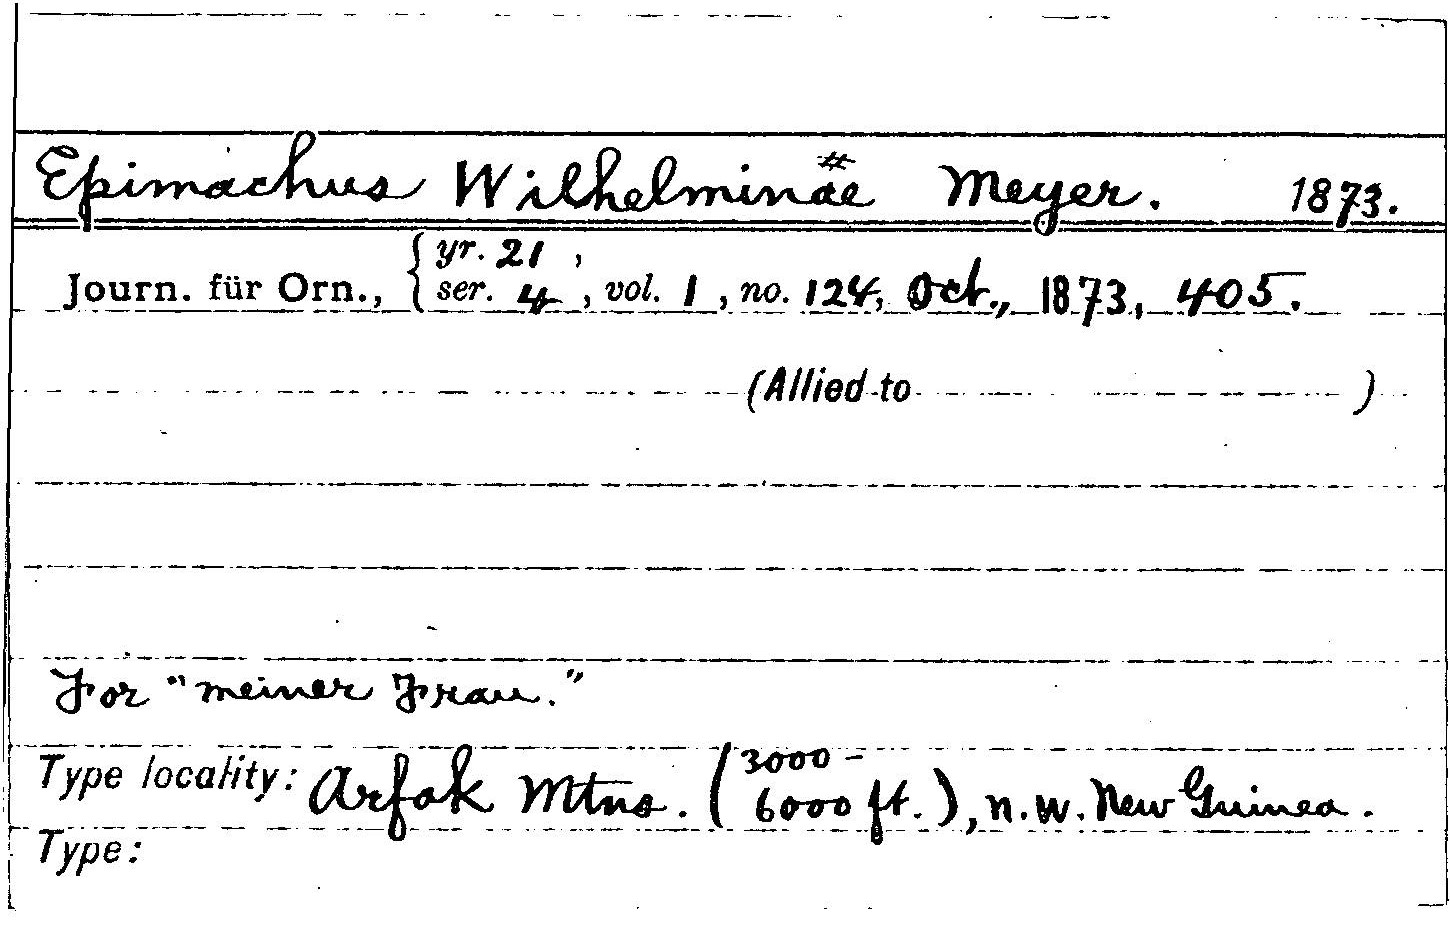 Epimachus Wilhelminae Meyer. 1873.
Journ. für Orn., { yr. 21 ,
ser. 4 , vol. 1 , no. 124, Oct., 1873, 405.
(Allied to )
For "meiner Frau."
Type locality: Arfak Mtns. (3000 –
6000 ft.), n.w. New Guinea.
Type: